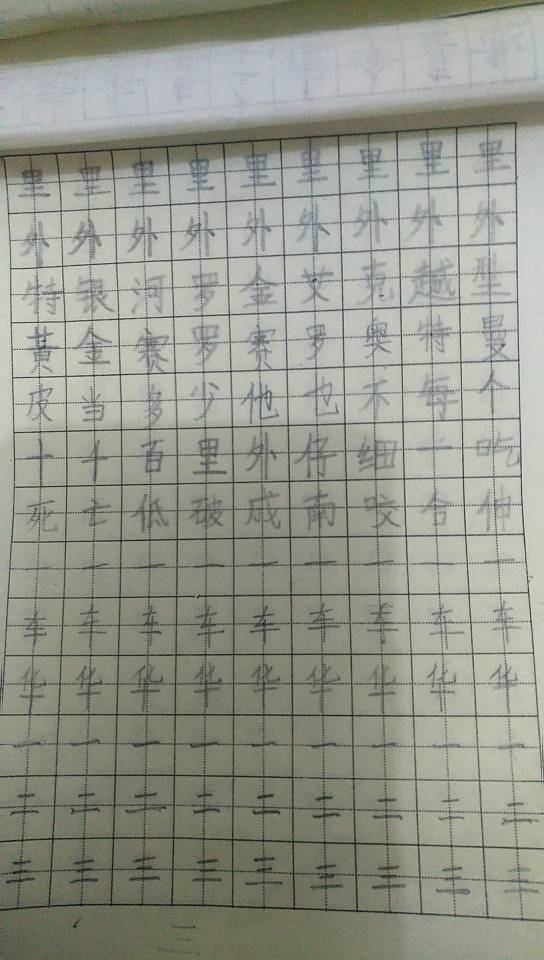 里里里里里里里里里
外外外外外外外外外
特银河罗金艾克越型
黄金赛罗赛罗奥特曼
皮当多少他也不每个
十千百里外仔细一吃
死亡低破成南咬合伸
一一一一一一一一一
车车车车车车车车车
华华华华华华华华华
一一一一一一一一一
二二二二二二二二二
三三三三三三三三三
三